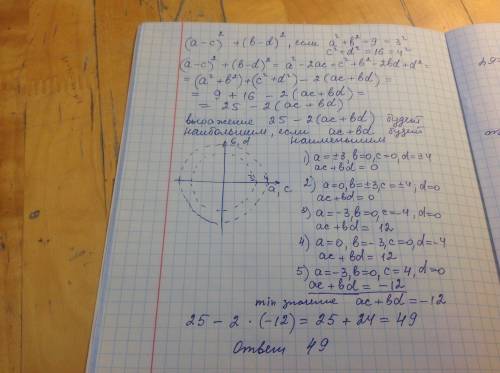 (a-c)² + (b-d)², если a²+b²=9=3²
c²+d²=16=4²
(a-c)²+(b-d)²=a²-2ac+c²+b²-2bd+d²=
=(a²+b²)+(c²+d²)-2(ac+bd)=
= 9+16-2(ac+bd)=
= 25-2(ac+bd)
выражение 25-2(ac+bd) будет
наибольшим, если ac+bd будет
наименьшим
b, d
3 4
a, c
1) a=±3, b=0, c=0, d=±4
ac+bd=0
2) a=0, b=±3, c=±4, d=0
ac+bd=0
3) a=-3, b=0, c=-4, d=0
ac+bd= 12
4) a=0, b=-3, c=0, d=-4
ac+bd=12
5) a=-3, b=0, c=4, d=0
ac+bd=-12
min значение ac+bd=-12
25-2·(-12)=25+24=49
Ответ 49